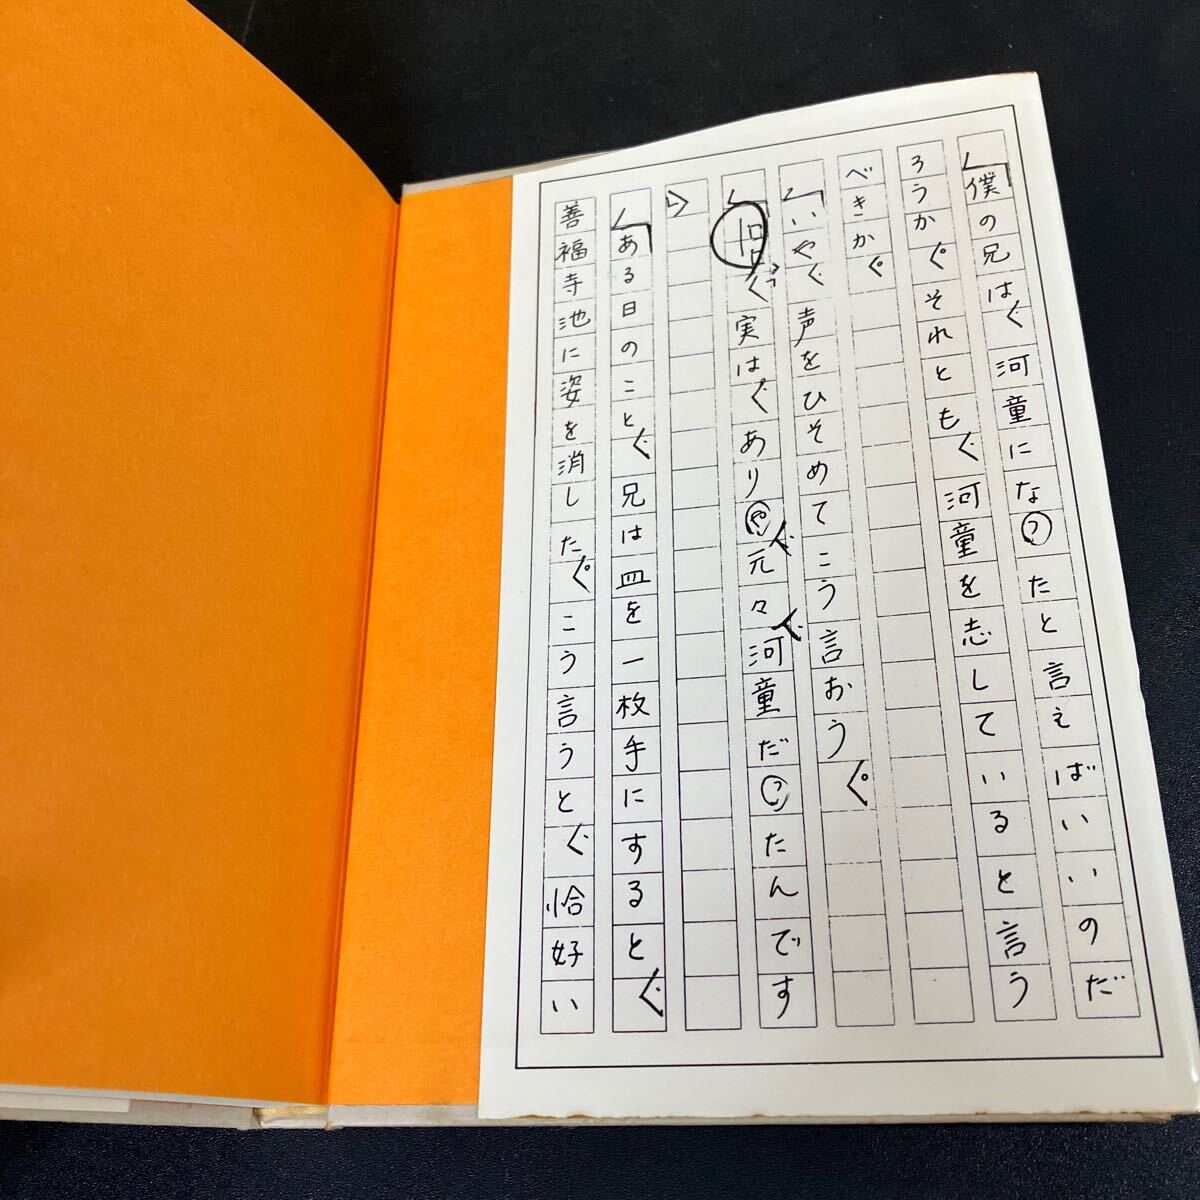 僕の兄は、河童になったと言えばいいのだ
ろうか。それとも、河童を志していると言う
べきか。
いや、声をひそめてこう言おう。
実は、ありゃ、元々、河童だったんです
ある日のこと、兄は皿を一枚手にすると、
善福寺池に姿を消した。こう言うと、恰好い